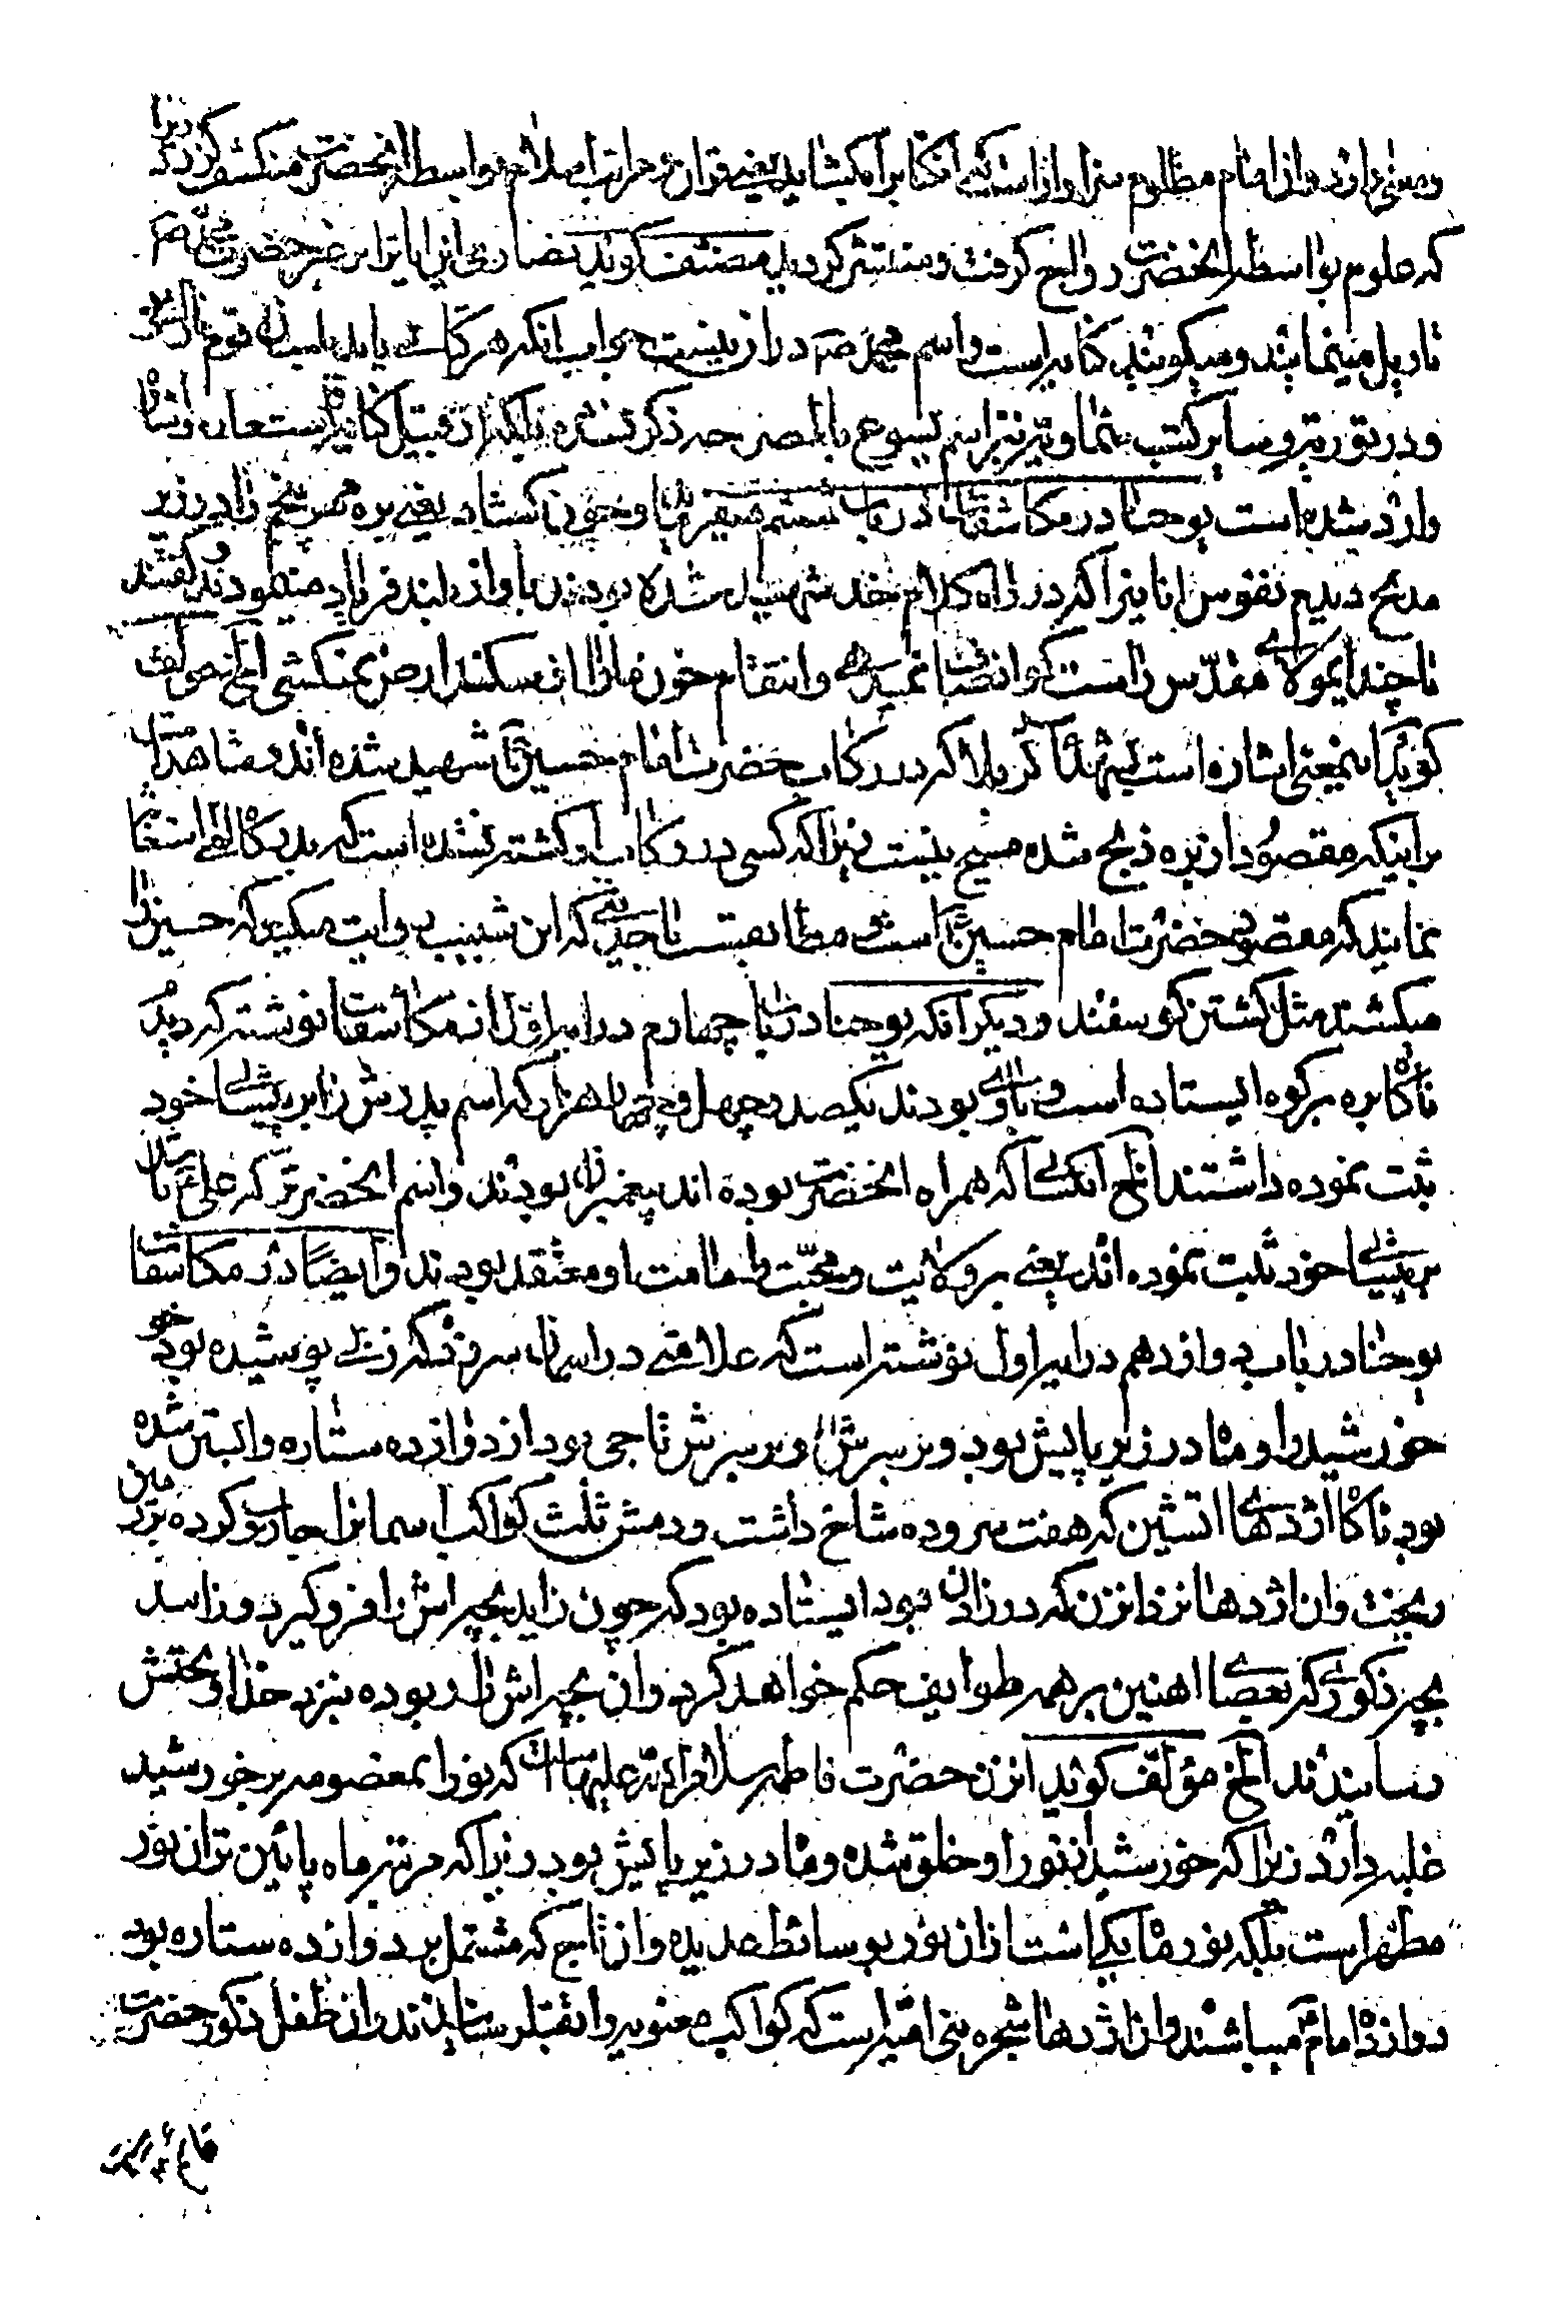 و معنی دارد و از امام مظلوم سزاوار است که انکتابرا بکشاید یعنی قران و مراتب اسلام بواسطه انحضرت منکشف کردد زیرا
که علوم بواسطه انحضرت رواج کرفت و منتشر کردید مصنف کوید نصاری این ایاترا بر غیر حضرت محمد ص
تاویل مینمایند و میکویند کنایه است و اسم محمد ص در ان نیست جواب انکه هر کتابی باید بلسان قوم نازل شود
و در توریة و سایر کتب سماویه نیز اسم یسوع بالصراحه ذکر نشده بلکه از قبیل کنایه و استعاره و اشاره
وارد شده است یوحنا در مکاشفات در باب ششم میفرماید و چون کشاد یعنی بره مهر پنجم را در زیر
مذبح دیدم نفوس انانیرا که در راه کلام خدا شهید شده بودند باواز بلند فریاد مینمودند و کفتند
تا چند ایمولای مقدس راست کو انصاف نمیدهی و انتقام خون ما را از سکنه ارض نمیکشی الخ مؤلف
کوید اینمعنی اشاره است بشهداء کربلا که در رکاب حضرت امام حسین ع شهید شده اند و شاهد است
بر اینکه مقصود از بره ذبح شده مسیح نیست زیرا که کسی در رکاب او کشته نشده است که بدرکاه الهی استغاثه
نمایند که مقصود حضرت امام حسین ع است مطابقست با حدیثی که ابن شبیب روایت میکند که حسین را
میکشتند مثل کشتن کوسفند و دیکر آنکه یوحنا در باب چهاردم در ایه اول از مکاشفات نوشته که دیدم
ناکاه بره بر کوه ایستاده است و باوی بودند یکصد و چهل و چهار هزار که اسم پدرش را بر پیشانی خود
ثبت نموده داشتند الخ انکسانیکه همراه انحضرت بوده اند پیغمبران بودند و اسم انحضرت که علی ع باشد
بر پیشانی خود ثبت نموده اند یعنی بر ولایت و محبت و امامت او معتقد بودند و ایضا در مکاشفات
یوحنا در باب دوازدهم در ایه اول نوشته است که علامتی در اسمان سر زد که زنی پوشیده بود خود
خورشید را و ماه در زیر پایش بود و بر سرش و بر سرش تاجی بود از دوازده ستاره و ابستن شده
بود ناکاه اژدهای اتشین که هفت سر و ده شاخ داشت و دمش ثلث کواکب اسمانرا جاروب کرده بر زمین
ریخت و ان اژدها نزد انزن که در زادن بود ایستاده بود که چون زاید بچه اش را فرو کیرد و زائید
بچه ذکوری که بعصای اهنین بر همه طوایف حکم خواهد کرد و ان بچه اش را ربوده بنزد خدا و تختش
رسانیدند الخ مؤلف کوید انزن حضرت فاطمه سلام الله علیها است که نور انمعصومه بر خورشید
غلبه دارد زیرا که خورشید از نور او خلق شده و ماه در زیر پایش بود زیرا که مرتبه ماه پائین تر از نور
مطهر است بلکه نور ماه یکی است از ان نور بوسائط عدیده و ان تاج که مشتمل بر دوازده ستاره بود
دوازده امام میباشند و ان اژدها شجره بنی امیه است که کواکب معنویه را بقتل رسانیدند و ان طفل ذکور حضرت